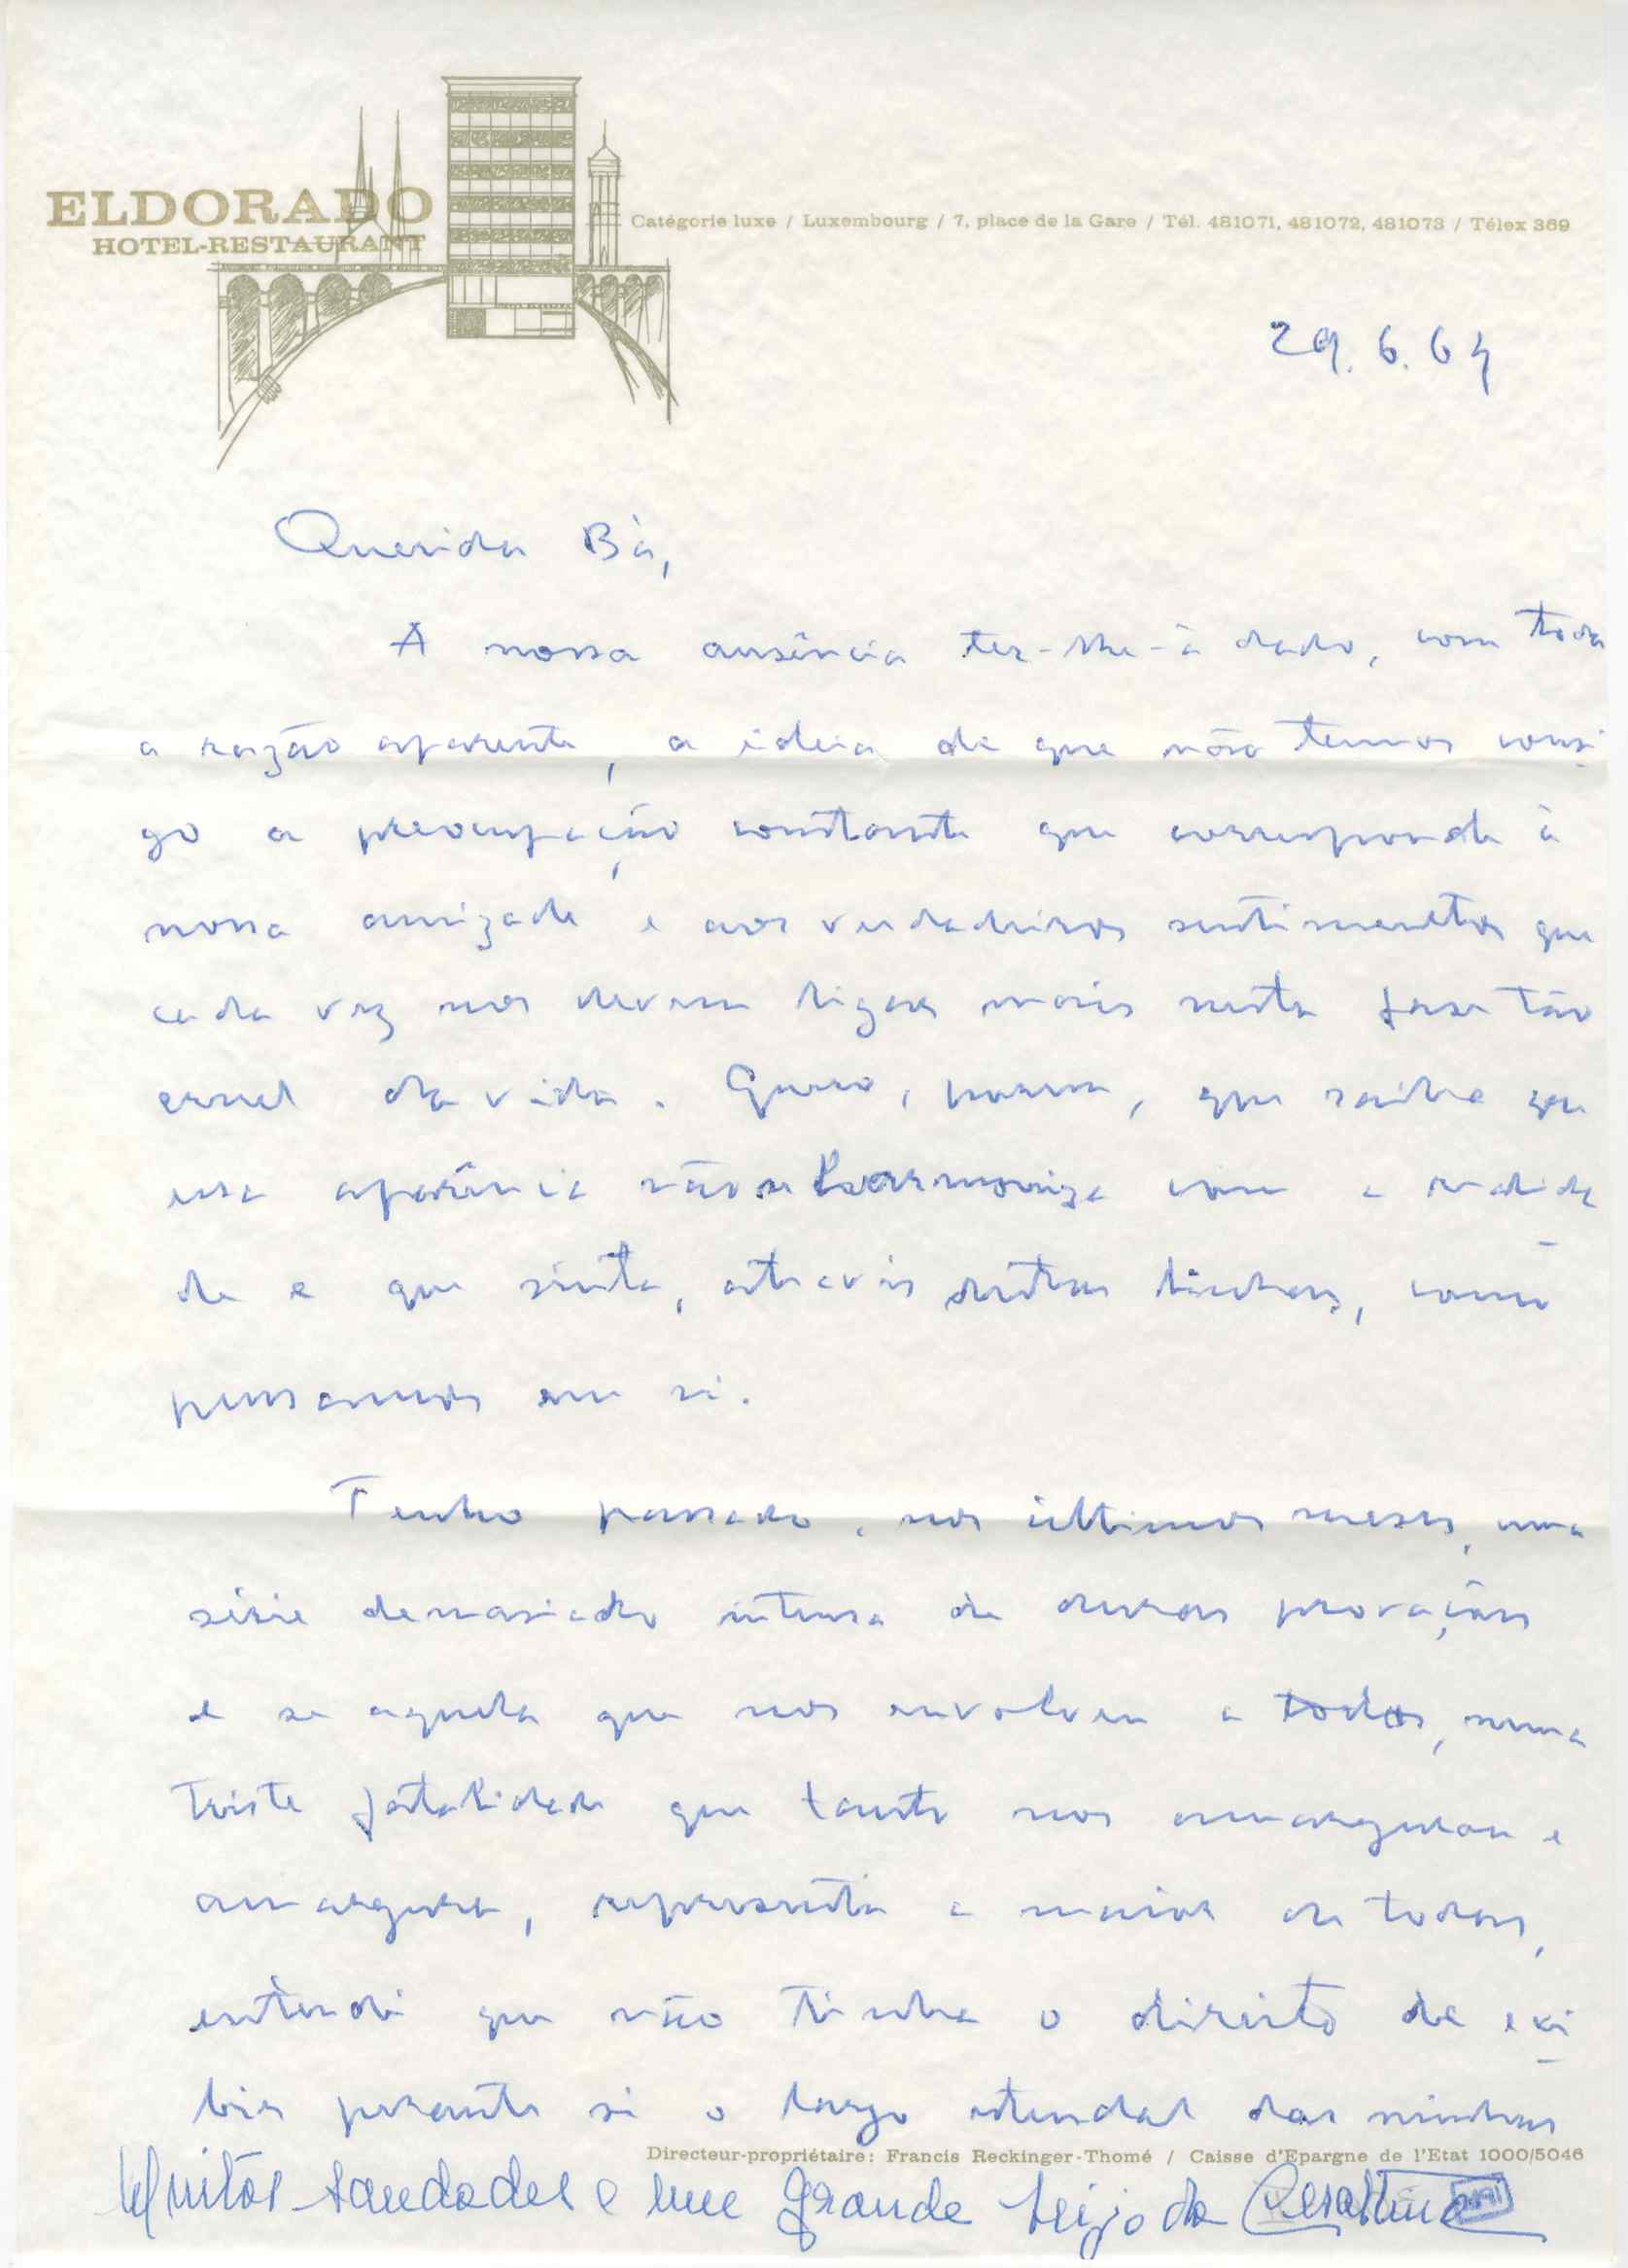 ELDORADO
HOTEL-RESTAURANT
Catégorie luxe / Luxembourg / 7, place de la Gare / Tél. 481071, 481072, 481073 / Télex 369
29.6.64
Querida Bà,
A nossa ausência ter-lhe-à dado, com toda
a razão aparente, a ideia de que não temos consi-
go a preocupação constante que corresponde à
nossa amizade e aos verdadeiros sentimentos que
cada vez nos devem ligar mais nesta fase tão
cruel da vida. Quero, porem, que saiba que
essa aparência não se harmoniza com a realida-
de e que sinta, através destas linhas, como
pensamos em si.
Tenho passado, nos últimos meses, uma
série demasiado intensa de duras provações
e se aquela que nos envolveu a todos, numa
triste fatalidade que tanto nos amargurou e
amargura, representa a maior de todas,
entendi que não tinha o direito de exi-
bir perante si o largo estendal das minhas
Directeur-propriétaire: Francis Reckinger-Thomé / Caisse d'Epargne de l'Etat 1000/5046
Muitas saudades e um grande beijo da